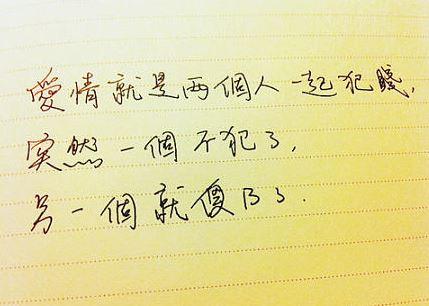 愛情就是两個人一起犯賤，
突然一個不犯了，
另一個就傻B了．